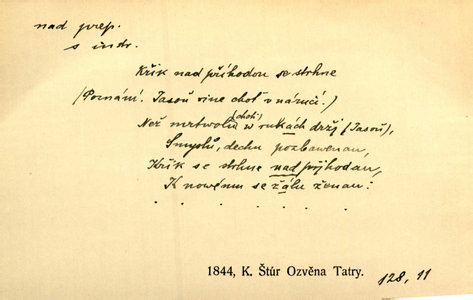 nad prep.
s instr.
Křik nad příhodou se strhne
(Poznání. Jasoň vine choť v náručí.)
Než mrtwolu (choti) w rukách držj (Jasoň),
Smyslů, dechu pozbawenau,
Křik se strhne nad přjhodau,
K nowému se žálu ženau:
. . . . . . .
1844, K. Štúr Ozvěna Tatry. 128, 11